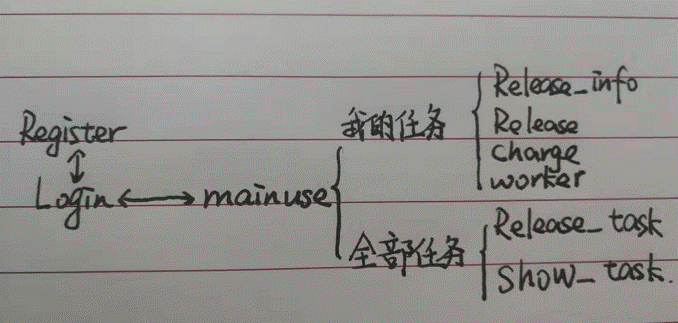 Register
Login
mainuse
我的任务
Release_info
Release
charge
worker
全部任务
Release_task
Show_task.